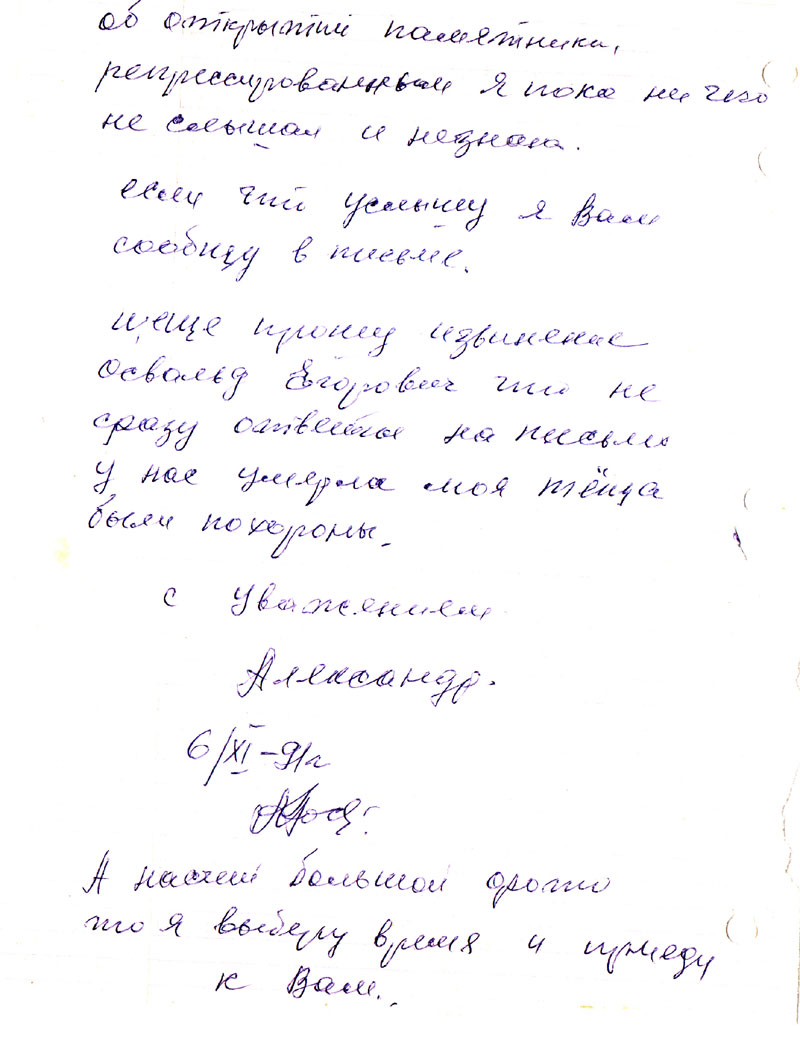 об открытии памятника,
репрессированным я пока ни чего
не слышал и незнаю.
если что услышу я Вам
сообщу в письме.
и еще прошу извинение
Освальд Егорович что не
сразу ответил на письмо
у нас умерла моя тёща
были похороны.
с Уважением
Александр.
6/XI-91г
А насчет большой фото
то я выберу время и приеду
к Вам.